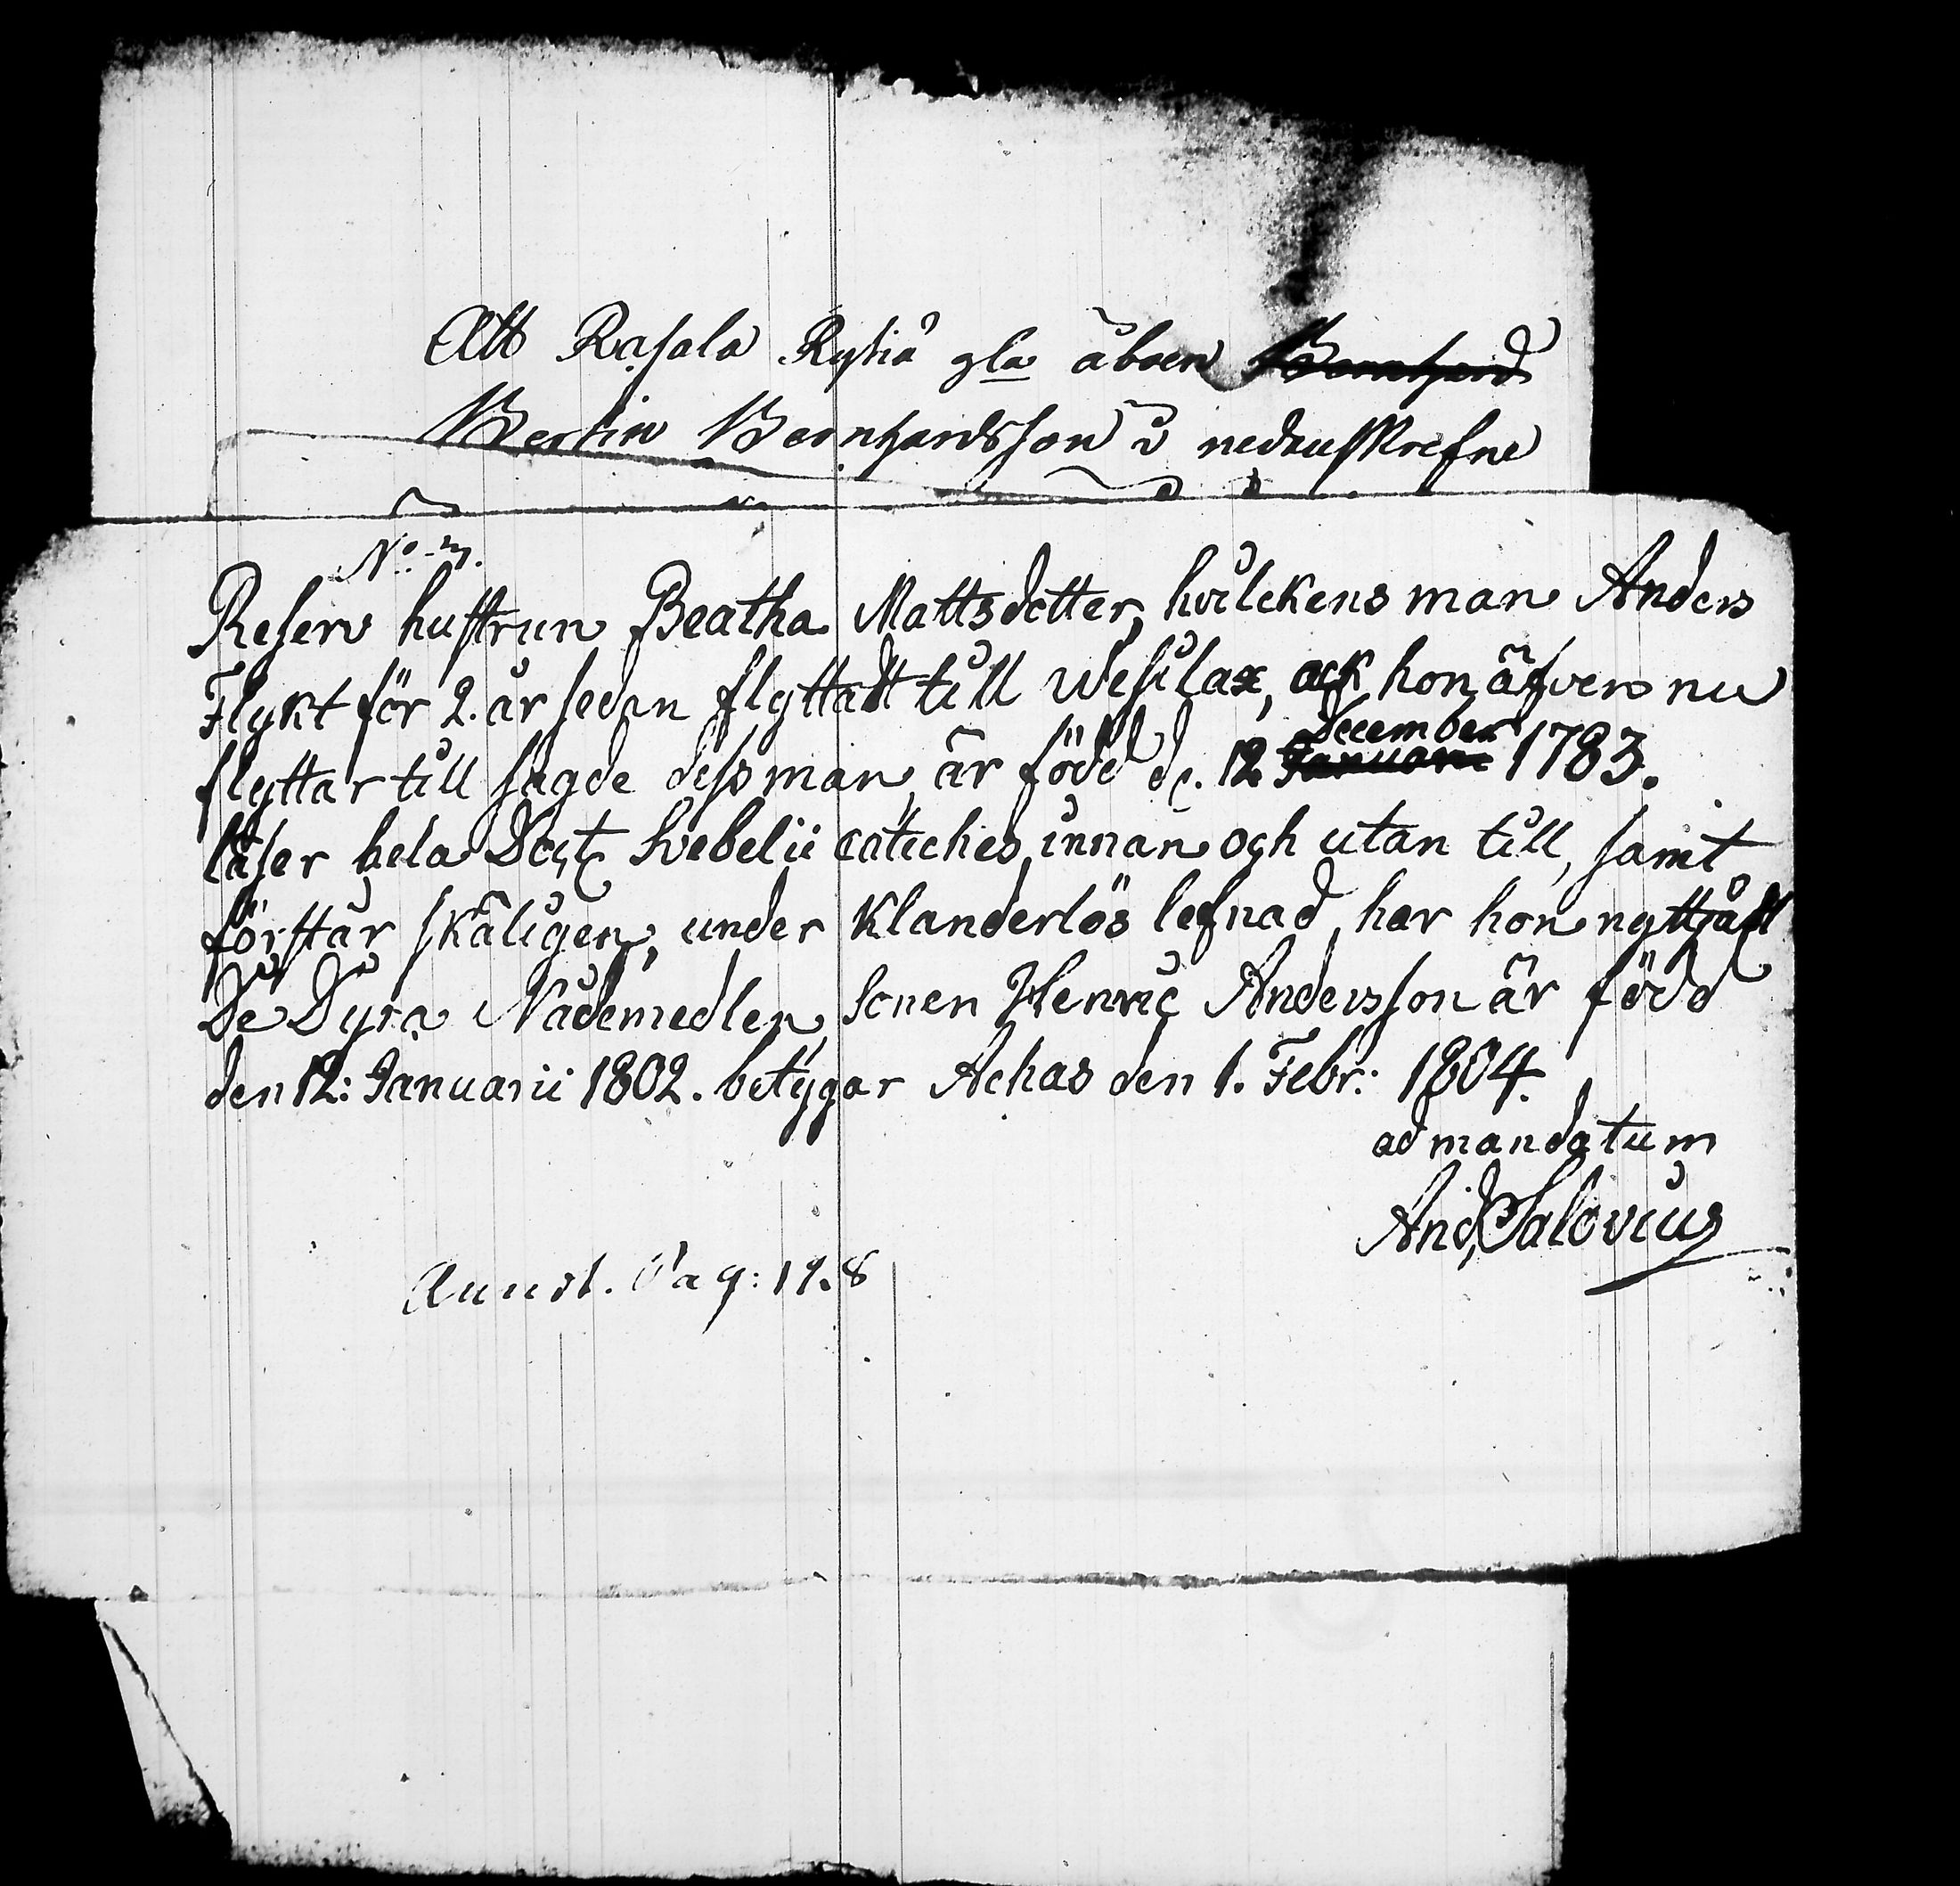 Att Rasala Rystiä gla åboen Bernhard
Bertin Bernhardsson i nedanskrefne
No 3.
Reserv hustrun Beatha Mattsdotter, hvilckens man Anders
Flykt för 2. år sedan flyttadt till Wesilax, ock hon äfven nu
December
flyttar till sagde dess man, är född d. 12 Januarii 1783.
läser hela Doct Svebelii catiches, innan och utan till, samt
förstår skäligen, under klanderlös lefnad, har hon nyttjadt
De Dyra Nådemedlen, Sonen Henric Andersson är född
den 12: Januarii 1802. betygar Achas den 1. Febr: 1804.
ad mandatum
And, Salovius
Pag: 198